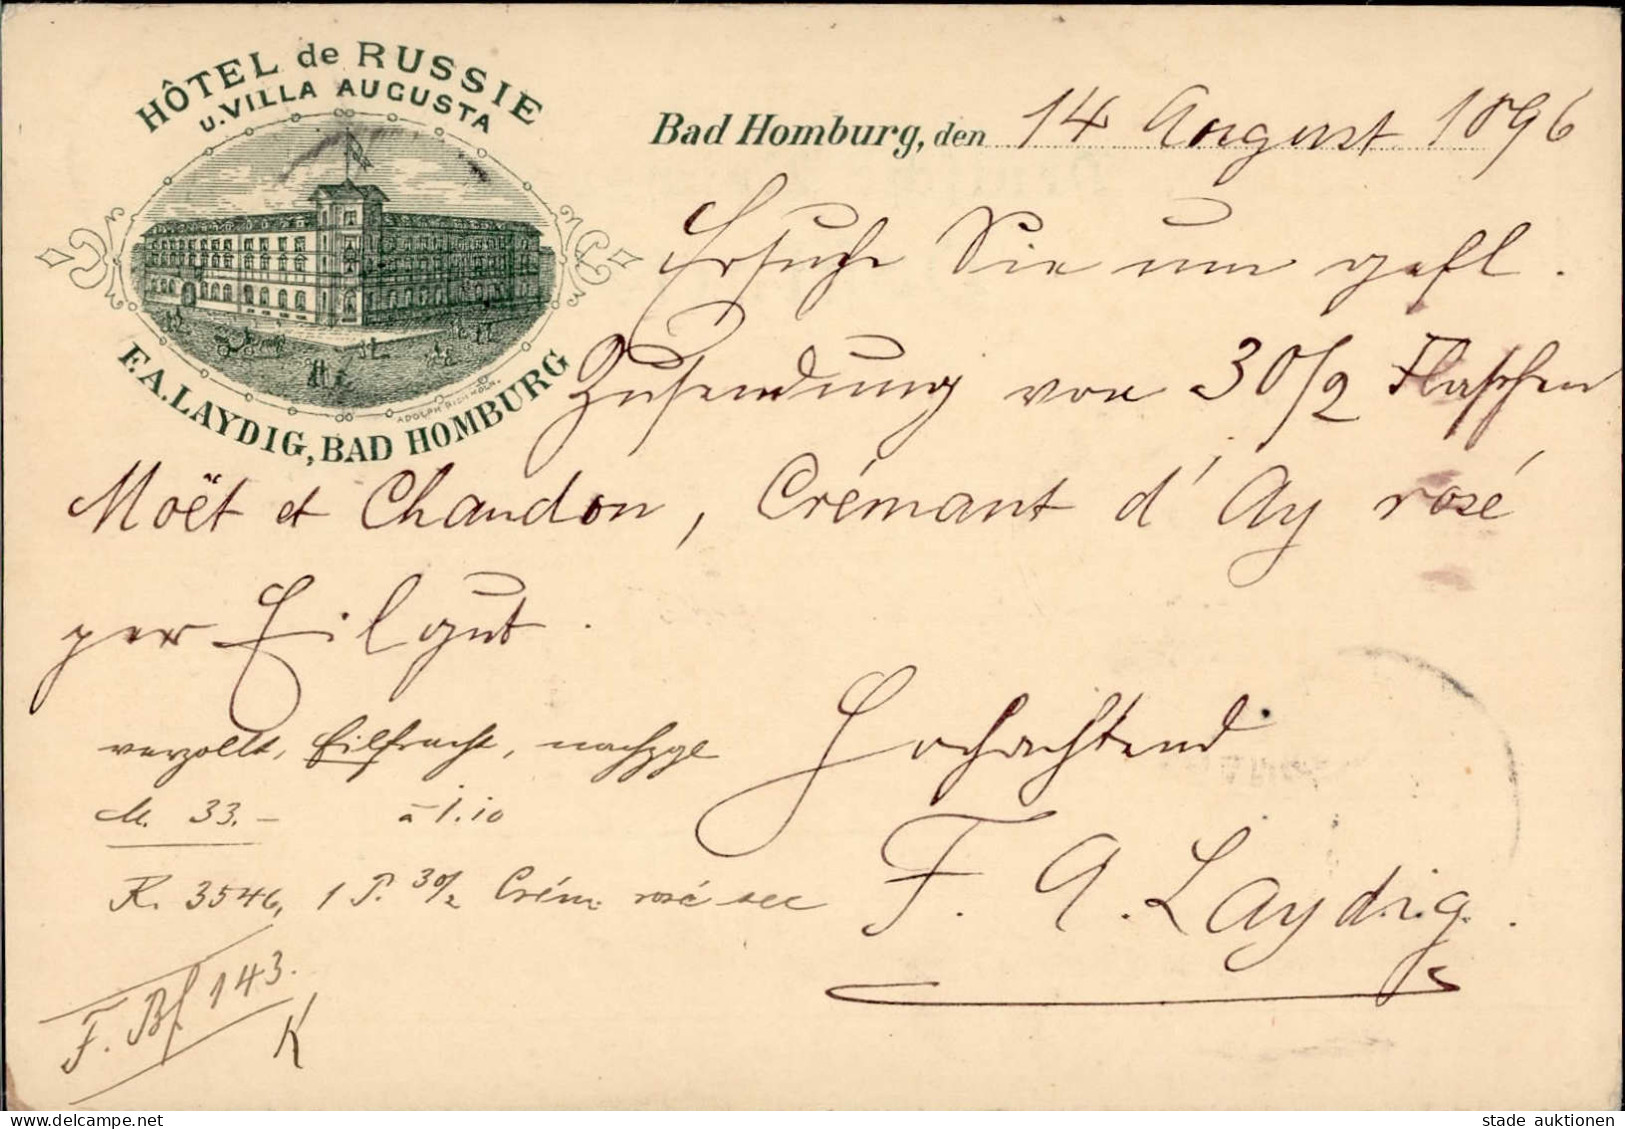 HÔTEL de RUSSIE
u. VILLA AUGUSTA
F.A. LAYDIG, BAD HOMBURG
Bad Homburg, den 14 August 1896
Ersuche Sie um gefl.
Zusendung von 30/2 Flaschen
Moët et Chandon, Crémant d'Ay rosé
per Eilgut.
Hochachtend
F. A. Laydig.
verzollt, Eilfracht,
M. 33.– à 1.10
K. 3546, 1 P. 30/2 Crém. rosé sec
F. Bf 143.
K
delcampe.net
stade auktionen